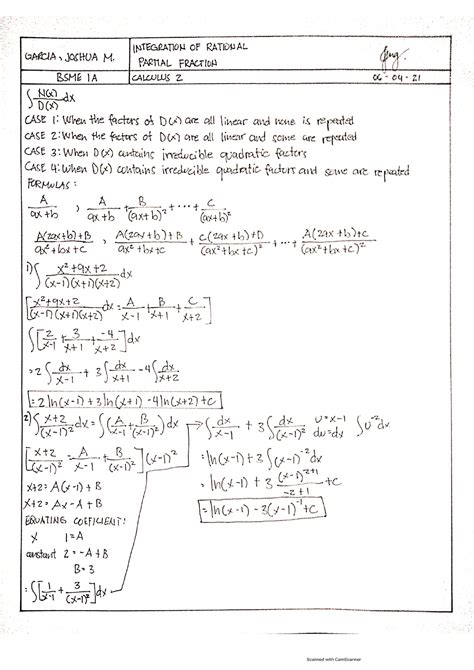 GARCIA, JOSHUA M.
INTEGRATION OF RATIONAL
PARTIAL FRACTION
BSME 1A
CALCULUS 2
06-04-21
∫ N(x)/D(x) dx
CASE 1: When the factors of D(x) are all linear and none is repeated
CASE 2: When the factors of D(x) are all linear and some are repeated
CASE 3: When D(x) contains irreducible quadratic factors
CASE 4: When D(x) contains irreducible quadratic factors and some are repeated
FORMULAS:
A/(ax+b) , A/(ax+b) + B/(ax+b)² + ... + C/(ax+b)²
(A(2ax+b)+B)/(ax²+bx+c) , (A(2ax+b)+B)/(ax²+bx+c) + (C(2ax+b)+D)/(ax²+bx+c)² + ... + (A(2ax+b)+C)/(ax²+bx+c)²
1) ∫ (x²+9x+2)/((x-1)(x+1)(x+2)) dx
[(x²+9x+2)/((x-1)(x+1)(x+2)) dx = A/(x-1) + B/(x+1) + C/(x+2)]
∫ [2/(x-1) + 3/(x+1) + -4/(x+2)] dx
= 2∫ dx/(x-1) + 3∫ dx/(x+1) - 4∫ dx/(x+2)
= 2 ln(x-1) + 3 ln(x+1) - 4 ln(x+2) + C
2) ∫ (x+2)/(x-1)² dx = ∫ (A/(x-1) + B/(x-1)²) dx
[(x+2)/(x-1)² = A/(x-1) + B/(x-1)²] (x-1)²
x+2 = A(x-1) + B
x+2 = Ax - A + B
EQUATING COEFFICIENT:
x 1 = A
constant 2 = -A + B
B = 3
= ∫ [1/(x-1) + 3/(x-1)²] dx
→ ∫ dx/(x-1) + 3∫ dx/(x-1)² u = x-1 du = dx ∫ u⁻² dx
= ln(x-1) + 3∫ (x-1)⁻² dx
= ln(x-1) + 3 (x-1)⁻²⁺¹/(-2+1) + C
= ln(x-1) - 3(x-1)⁻¹ + C
Scanned with CamScanner